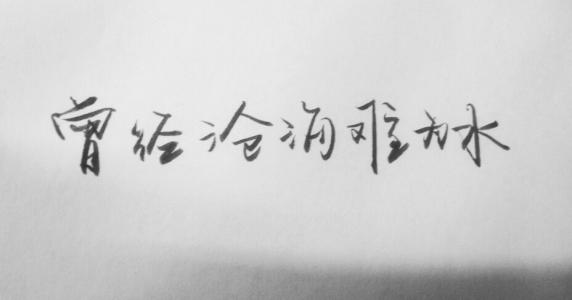 曾经沧海难为水